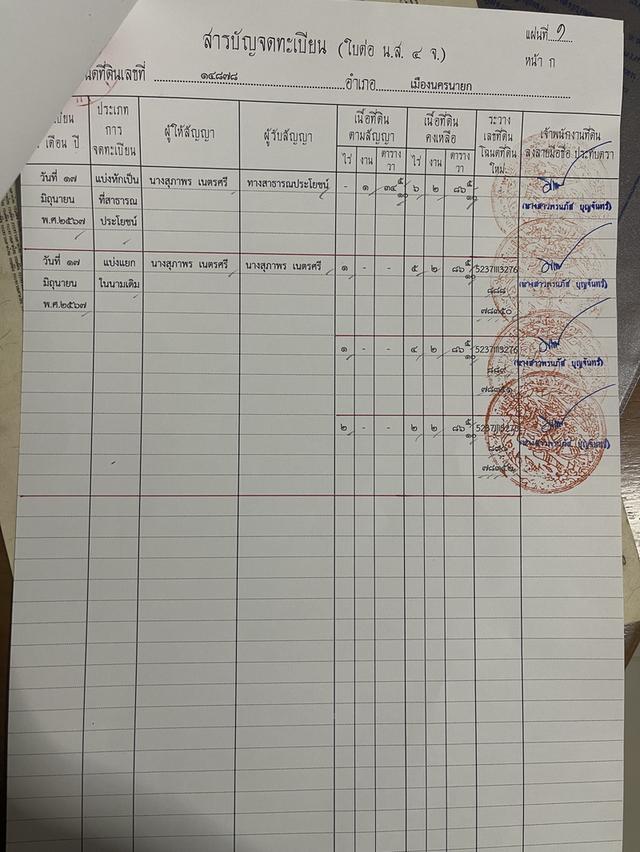 สารบัญจดทะเบียน (ใบต่อ น.ส. ๔ จ.)
แผ่นที่ ๑
หน้า ก
ดที่ดินเลขที่ ๑๔๘๗๘ อำเภอ เมืองนครนายก
เดือน ปี
ประเภท
การ
จดทะเบียน
ผู้ให้สัญญา
ผู้รับสัญญา
เนื้อที่ดิน
ตามสัญญา
ไร่ งาน ตาราง
วา
เนื้อที่ดิน
คงเหลือ
ไร่ งาน ตาราง
วา
ระวาง
เลขที่ดิน
โฉนดที่ดิน
ใหม่
เจ้าพนักงานที่ดิน
ลงลายมือชื่อ ประทับตรา
วันที่ ๑๗ แบ่งหักเป็น นางสุภาพร เนตรศรี ทางสาธารณประโยชน์ - ๑ ๓๔ ๕/๑๐ ๖ ๒ ๘๖ ๕/๑๐
มิถุนายน ที่สาธารณ
พ.ศ.๒๕๖๗ ประโยชน์
(นางสาวพรนภัส บุญจันทร์)
วันที่ ๑๗ แบ่งแยก นางสุภาพร เนตรศรี นางสุภาพร เนตรศรี ๑ - - ๕ ๒ ๘๖ ๕/๑๐ 5237III3276
มิถุนายน ในนามเดิม ๘๘๘
พ.ศ.๒๕๖๗ ๗๘๓๕๐
(นางสาวพรนภัส บุญจันทร์)
๑ - - ๔ ๒ ๘๖ ๕/๑๐ 5237III3276
๘๘๙
๗๘๓๕๑
(นางสาวพรนภัส บุญจันทร์)
๒ - - ๒ ๒ ๘๖ ๕/๑๐
๗๘๓๕๒
(นางสาวพรนภัส บุญจันทร์)